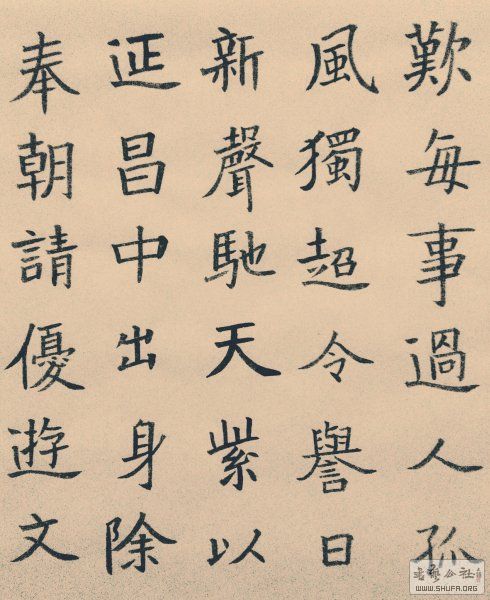 歎每事過人孤
風獨超令譽日
新聲馳天紫以
延昌中出身除
奉朝請優遊文
WWW.SHUFA.ORG